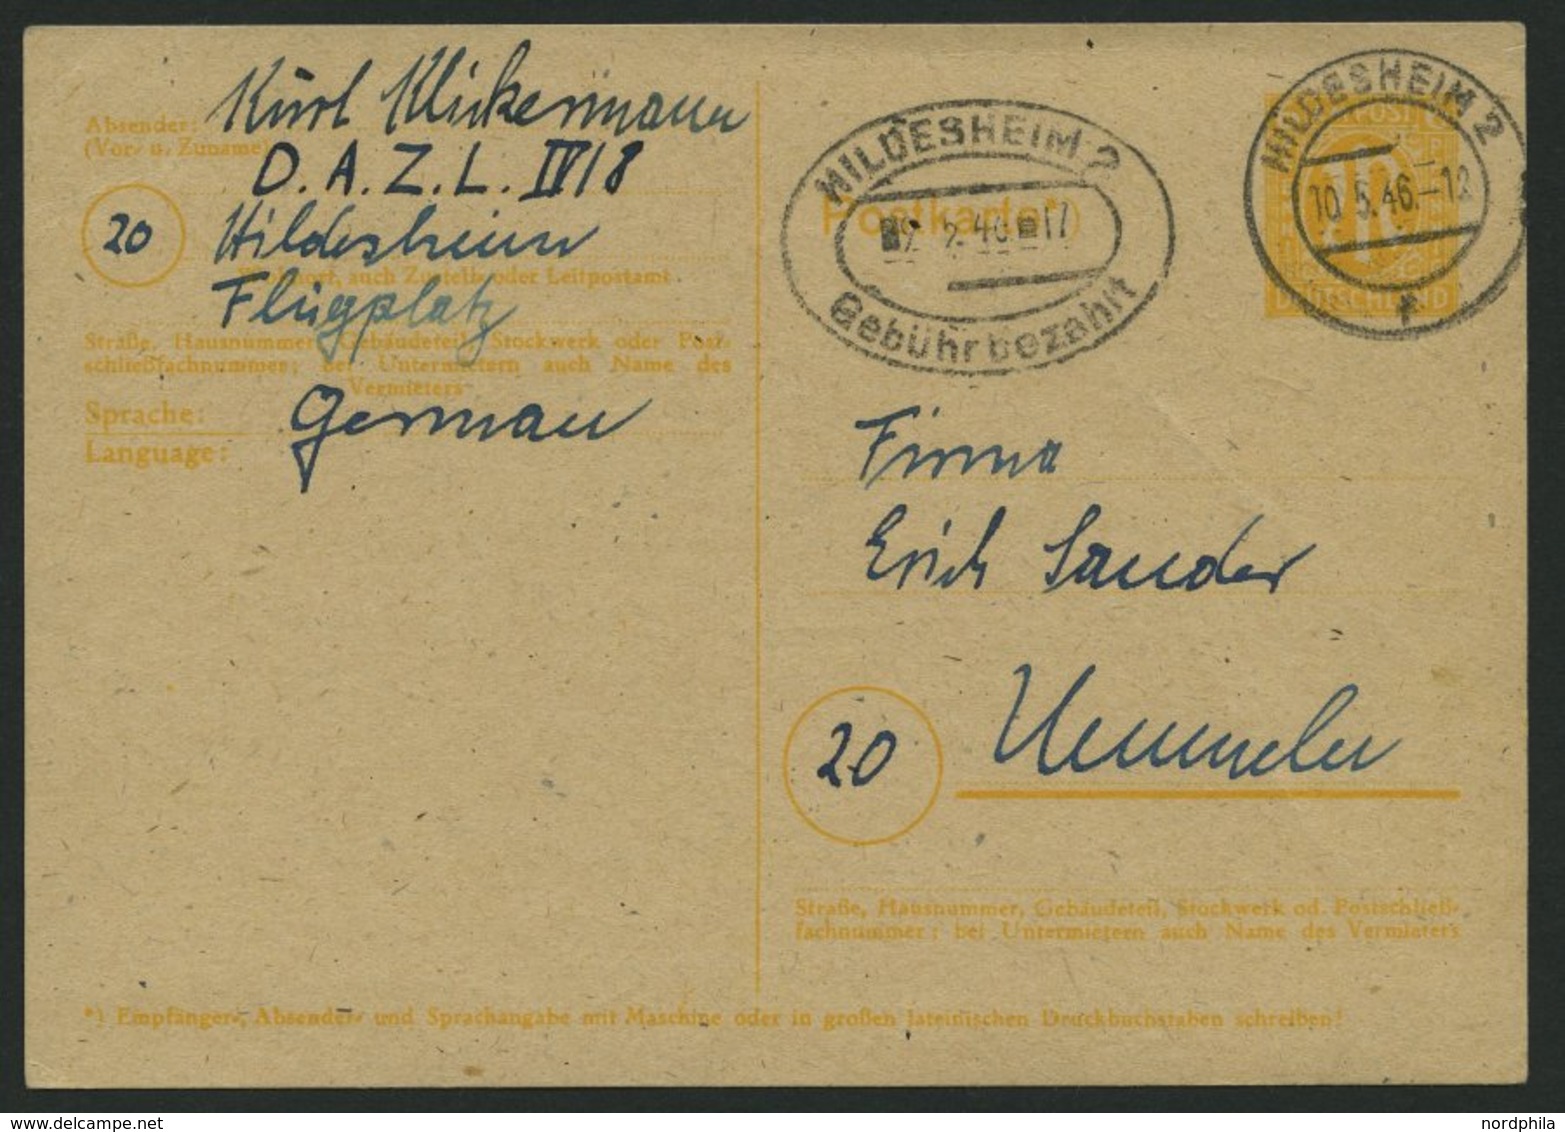 Absender:
(Vor- u. Zuname)
Kurt Klickermann
D. A. Z. L. IV/8
20
Hildesheim
auch Zustell- oder Leitpostamt
Flugplatz
Straße, Hausnummer, Gebäudeteil, Stockwerk oder Post-
schließfachnummer; bei Untermietern auch Name des
Vermieters
Sprache:
Language:
German
HILDESHEIM 2
Postkarte*)
Gebühr bezahlt
HILDESHEIM 2
10.5.46.-12
DEUTSCHLAND
Firma
Erich Sander
20
Straße, Hausnummer, Gebäudeteil, Stockwerk od. Postschließ-
fachnummer; bei Untermietern auch Name des Vermieters
*) Empfänger-, Absender- und Sprachangabe mit Maschine oder in großen lateinischen Druckbuchstaben schreiben!
nordphila